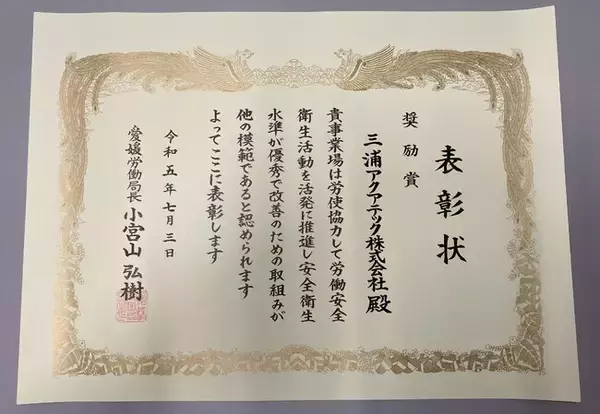 表彰状
奨励賞
三浦アクアテック株式会社 殿
貴事業場は労使協力して労働安全
衛生活動を活発に推進し安全衛生
水準が優秀で改善のための取組みが
他の模範であると認められます
よってここに表彰します
令和五年七月三日
愛媛労働局長 小宮山 弘樹